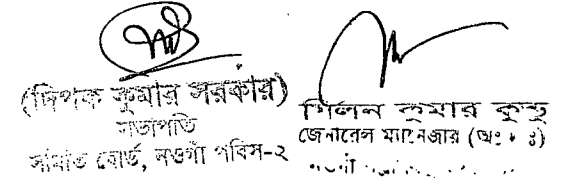 (দিপক কুমার সরকার)
সভাপতি
সমিতি বোর্ড, নওগাঁ পবিস-২
মিলন কুমার কুন্ডু
জেনারেল ম্যানেজার